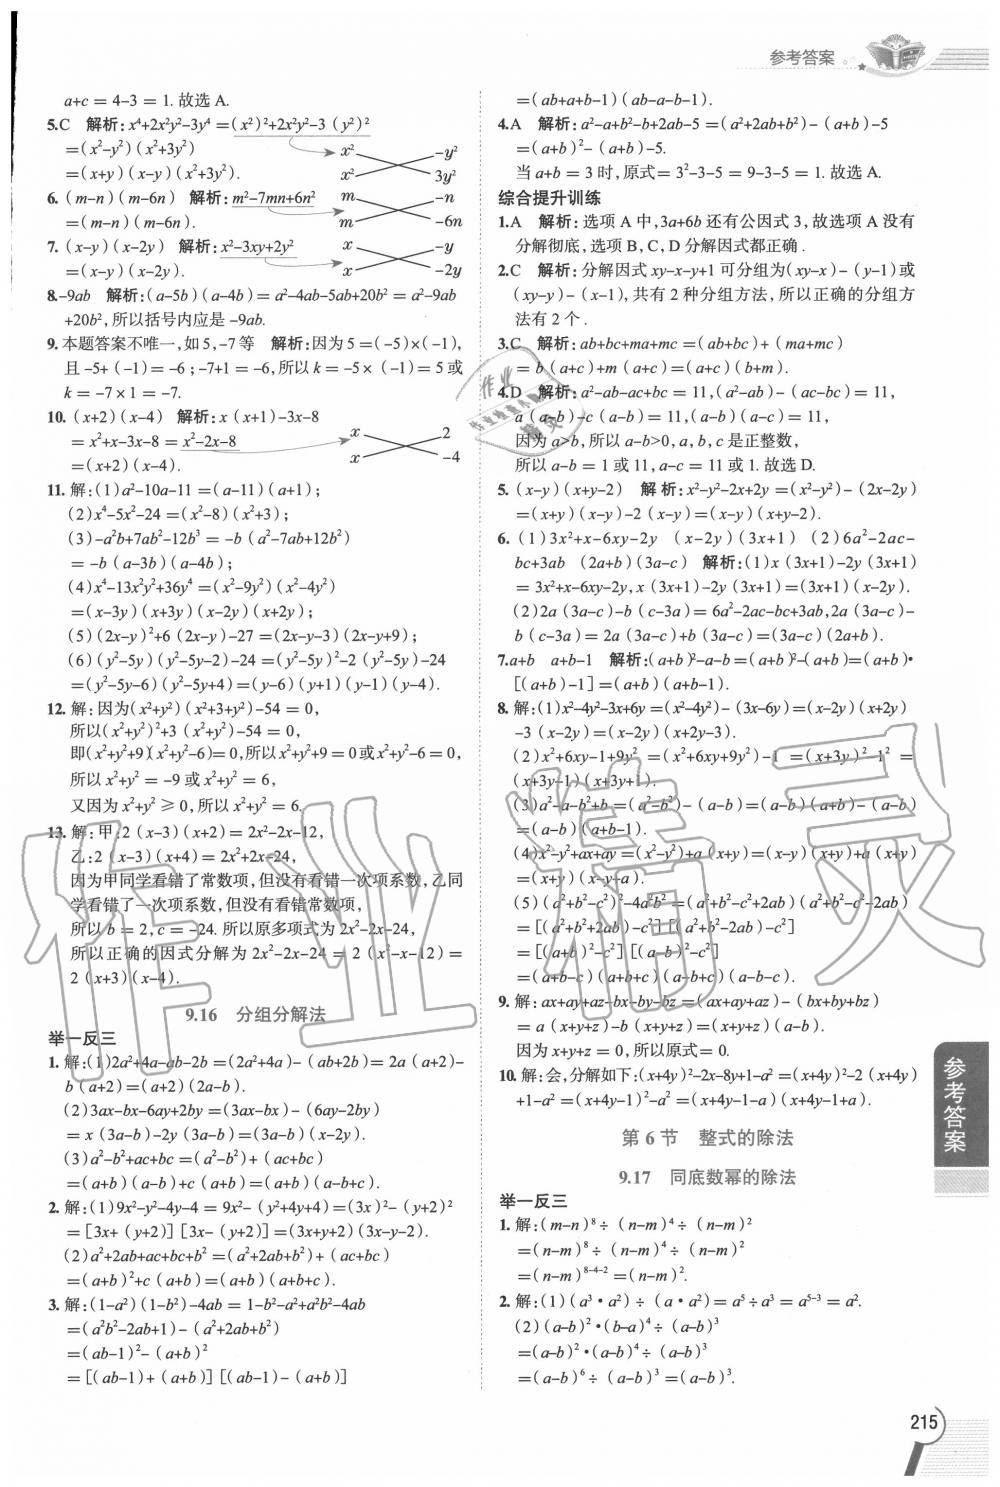 参考答案
a+c = 4-3 = 1. 故选 A.
5.C 解析: x⁴+2x²y²-3y⁴ =(x²)²+2x²y²-3 (y²)²
=(x²-y²) (x²+3y²)
=(x+y) (x-y) (x²+3y²).
x² -y²
x² 3y²
6. (m-n) (m-6n) 解析: m²-7mn+6n²
=(m-n) (m-6n).
m -n
m -6n
7. (x-y) (x-2y) 解析: x²-3xy+2y²
=(x-y) (x-2y).
x -y
x -2y
8.-9ab 解析: (a-5b) (a-4b) = a²-4ab-5ab+20b² = a²-9ab
+20b², 所以括号内应是 -9ab.
9. 本题答案不唯一, 如 5, -7 等 解析: 因为 5 =(-5)×(-1),
且 -5+ (-1)= -6 ; -7+1 = -6, 所以 k = -5× (-1)= 5 或
k = -7×1 = -7.
10. (x+2) (x-4) 解析: x (x+1)-3x-8
= x²+x-3x-8 = x²-2x-8
=(x+2) (x-4).
x 2
x -4
11. 解: (1)a²-10a-11 =(a-11) (a+1) ;
(2)x⁴-5x²-24 =(x²-8) (x²+3) ;
(3)-a²b+7ab²-12b³ = -b (a²-7ab+12b²)
= -b (a-3b) (a-4b) ;
(4)x⁴-13x²y²+36y⁴ =(x²-9y²) (x²-4y²)
=(x-3y) (x+3y) (x-2y) (x+2y) ;
(5) (2x-y)²+6 (2x-y)-27 =(2x-y-3) (2x-y+9) ;
(6) (y²-5y) (y²-5y-2)-24 =(y²-5y)²-2 (y²-5y)-24
=(y²-5y-6) (y²-5y+4)=(y-6) (y+1) (y-1) (y-4).
12. 解: 因为(x²+y²) (x²+3+y²)-54 = 0,
所以(x²+y²)²+3 (x²+y²)-54 = 0,
即(x²+y²+9)(x²+y²-6)= 0, 所以 x²+y²+9 = 0 或 x²+y²-6 = 0,
所以 x²+y² = -9 或 x²+y² = 6,
又因为 x²+y² ≥ 0, 所以 x²+y² = 6.
13. 解: 甲: 2 (x-3) (x+2)= 2x²-2x-12,
乙: 2 (x-3) (x+4)= 2x²+2x-24,
因为甲同学看错了常数项, 但没有看错一次项系数, 乙同
学看错了一次项系数, 但没有看错常数项,
所以 b = 2, c = -24. 所以原多项式为 2x²-2x-24,
所以正确的因式分解为 2x²-2x-24 = 2 (x²-x-12) =
2 (x+3) (x-4).
9.16 分组分解法
举一反三
1. 解: (1)2a²+4a-ab-2b =(2a²+4a)- (ab+2b)= 2a (a+2)-
b (a+2)=(a+2) (2a-b).
(2)3ax-bx-6ay+2by =(3ax-bx)- (6ay-2by)
= x (3a-b)-2y (3a-b)=(3a-b) (x-2y).
(3)a²-b²+ac+bc =(a²-b²)+ (ac+bc)
=(a+b) (a-b)+c (a+b)=(a+b) (a-b+c).
2. 解: (1)9x²-y²-4y-4 = 9x²- (y²+4y+4)=(3x)²- (y+2)²
= [3x+ (y+2)] [3x- (y+2)]=(3x+y+2) (3x-y-2).
(2)a²+2ab+ac+bc+b² =(a²+2ab+b²)+ (ac+bc)
=(a+b)²+c (a+b)=(a+b) (a+b+c).
3. 解: (1-a²) (1-b²)-4ab = 1-b²-a²+a²b²-4ab
=(a²b²-2ab+1)- (a²+2ab+b²)
=(ab-1)²- (a+b)²
= [(ab-1)+ (a+b)] [(ab-1)- (a+b)]
=(ab+a+b-1) (ab-a-b-1).
4.A 解析: a²-a+b²-b+2ab-5 =(a²+2ab+b²)- (a+b)-5
=(a+b)²- (a+b)-5.
当 a+b = 3 时, 原式= 3²-3-5 = 9-3-5 = 1. 故选 A.
综合提升训练
1.A 解析: 选项 A 中, 3a+6b 还有公因式 3, 故选项 A 没有
分解彻底, 选项 B, C, D 分解因式都正确 .
2.C 解析: 分解因式 xy-x-y+1 可分组为(xy-x)- (y-1)或
(xy-y)- (x-1), 共有 2 种分组方法, 所以正确的分组方
法有 2 个 .
3.C 解析: ab+bc+ma+mc =(ab+bc)+ (ma+mc)
= b (a+c)+m (a+c)=(a+c) (b+m).
4.D 解析: a²-ab-ac+bc = 11, (a²-ab)- (ac-bc)= 11,
a (a-b)-c (a-b)= 11, (a-b) (a-c)= 11,
因为 a>b, 所以 a-b>0, a, b, c 是正整数,
所以 a-b = 1 或 11, a-c = 11 或 1. 故选 D.
5. (x-y) (x+y-2) 解析: x²-y²-2x+2y =(x²-y²)- (2x-2y)
=(x+y) (x-y)-2 (x-y)=(x-y) (x+y-2).
6. (1)3x²+x-6xy-2y (x-2y) (3x+1) (2)6a²-2ac-
bc+3ab (2a+b) (3a-c) 解析: (1)x (3x+1)-2y (3x+1)
= 3x²+x-6xy-2y, x (3x+1)-2y (3x+1)=(3x+1) (x-2y).
(2)2a (3a-c)-b (c-3a)= 6a²-2ac-bc+3ab, 2a (3a-c)-
b (c-3a)= 2a (3a-c)+b (3a-c)=(3a-c) (2a+b).
7.a+b a+b-1 解析: (a+b)²-a-b =(a+b)²-(a+b)=(a+b)•
[(a+b)-1]=(a+b) (a+b-1).
8. 解: (1)x²-4y²-3x+6y =(x²-4y²)- (3x-6y)=(x-2y) (x+2y)
-3 (x-2y)=(x-2y) (x+2y-3).
(2)x²+6xy-1+9y² =(x²+6xy+9y²)-1 =(x+3y)²-1² =
(x+3y-1) (x+3y+1).
(3)a²-a-b²+b =(a²-b²)- (a-b)=(a-b) (a+b)- (a-b)
=(a-b) (a+b-1).
(4)x²-y²+ax+ay =(x²-y²)+a (x+y)=(x-y) (x+y)+a (x+y)
=(x+y) (x-y+a).
(5) (a²+b²-c²)²-4a²b² =(a²+b²-c²+2ab) (a²+b²-c²-2ab)
= [(a²+b²+2ab)-c²] [(a²+b²-2ab)-c²]
= [(a+b)²-c²] [(a-b)²-c²]
=(a+b-c) (a+b+c) (a-b+c) (a-b-c).
9. 解: ax+ay+az-bx-by-bz =(ax+ay+az)- (bx+by+bz)
= a (x+y+z)-b (x+y+z)=(x+y+z) (a-b).
因为 x+y+z = 0, 所以原式= 0.
10. 解: 会, 分解如下: (x+4y)²-2x-8y+1-a² =(x+4y)²-2 (x+4y)
+1-a² =(x+4y-1)²-a² =(x+4y-1-a) (x+4y-1+a).
第 6 节 整式的除法
9.17 同底数幂的除法
举一反三
1. 解: (m-n)⁸÷ (n-m)⁴÷ (n-m)²
=(n-m)⁸÷ (n-m)⁴÷ (n-m)²
=(n-m)⁸⁻⁴⁻² =(n-m)².
2. 解: (1) (a³•a²) ÷ (a•a²)= a⁵÷a³ = a⁵⁻³ = a².
(2) (a-b)²•(b-a)⁴÷ (a-b)³
=(a-b)²•(a-b)⁴÷ (a-b)³
=(a-b)⁶÷ (a-b)³ =(a-b)³.
参考答案
215
作业精灵